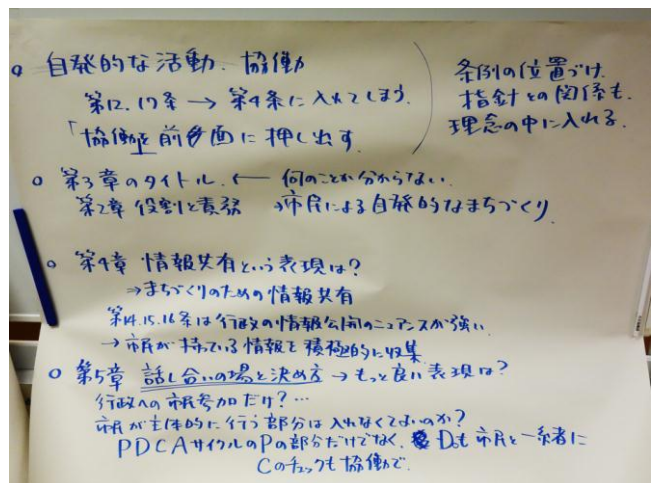 ○ 自発的な活動、協働
第12.17条 → 第4条に入れてしまう.
「協働」を前面に押し出す
条例の位置づけ.
指針との関係も.
理念の中に入れる.
○ 第3章のタイトル. ← 何のことか分からない.
第2章 役割と責務 →市民による自発的なまちづくり
○ 第4章 情報共有という表現は?
⇒まちづくりのための情報共有
第14.15.16条は行政の情報公開のニュアンスが強い.
→ 市民が持っている情報を積極的に収集
○ 第5章 話し合いの場と決め方 → もっと良い表現は?
行政への市民参加だけ?…
市民が主体的に行う部分は入れなくてよいのか?
PDCAサイクルのPの部分だけでなく、Dも市民と一緒に
Cのチェックも協働で.